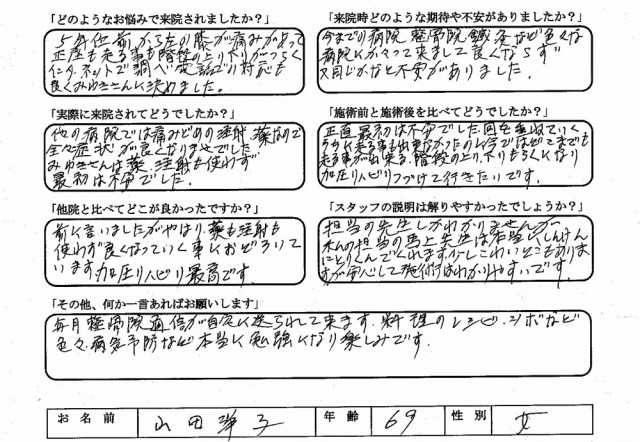 「どのようなお悩みで来院されましたか？」
5年位前から左の膝が痛みがあって
正座も走る事も階段の上り下りがつらく
インターネットで調べ電話での対応も
良くみゆきさんに決めました。
「来院時どのような期待や不安がありましたか？」
今までり病院、整骨院、鍼灸など色々な
病院にかゝって来まして良くならず
又同じかなと不安がありました。
「実際に来院されてどうでしたか？」
他の病院では痛みどめの注射、薬なので
全々症状が良くなりませでした
みゆきさんは薬、注射も使わず
最初は不安でした。
「施術前と施術後を比べてどうでしたか？」
正直最初は不安でした 回を重ねていく
うちに走る事も出来なかったのに今ではどこまでも
走る事が出来る、階段の上り、下りもらくになり
加圧リハビリつづけて行きたいです。
「他院と比べてどこが良かったですか？」
前に言いましたがやはり、薬も注射も
使わず良くなっていく事におどろいて
います、加圧リハビリ最高です。
「スタッフの説明は解りやすかったでしょうか？」
担当の先生しかわかりませんが
私の担当の馬上先生は本当にしんけん
にとりくんでくれます 少しこわいとこもありま
すが安心して施術はわかりやすいです。
「その他、何か一言あればお願いします」
毎月整骨院通信が自宅に送られて来ます、料理のレシピ、ツボなど
色々、病気予防など本当に勉強になり楽しみです。
お名前 山田 子 年齢 69 性別 女